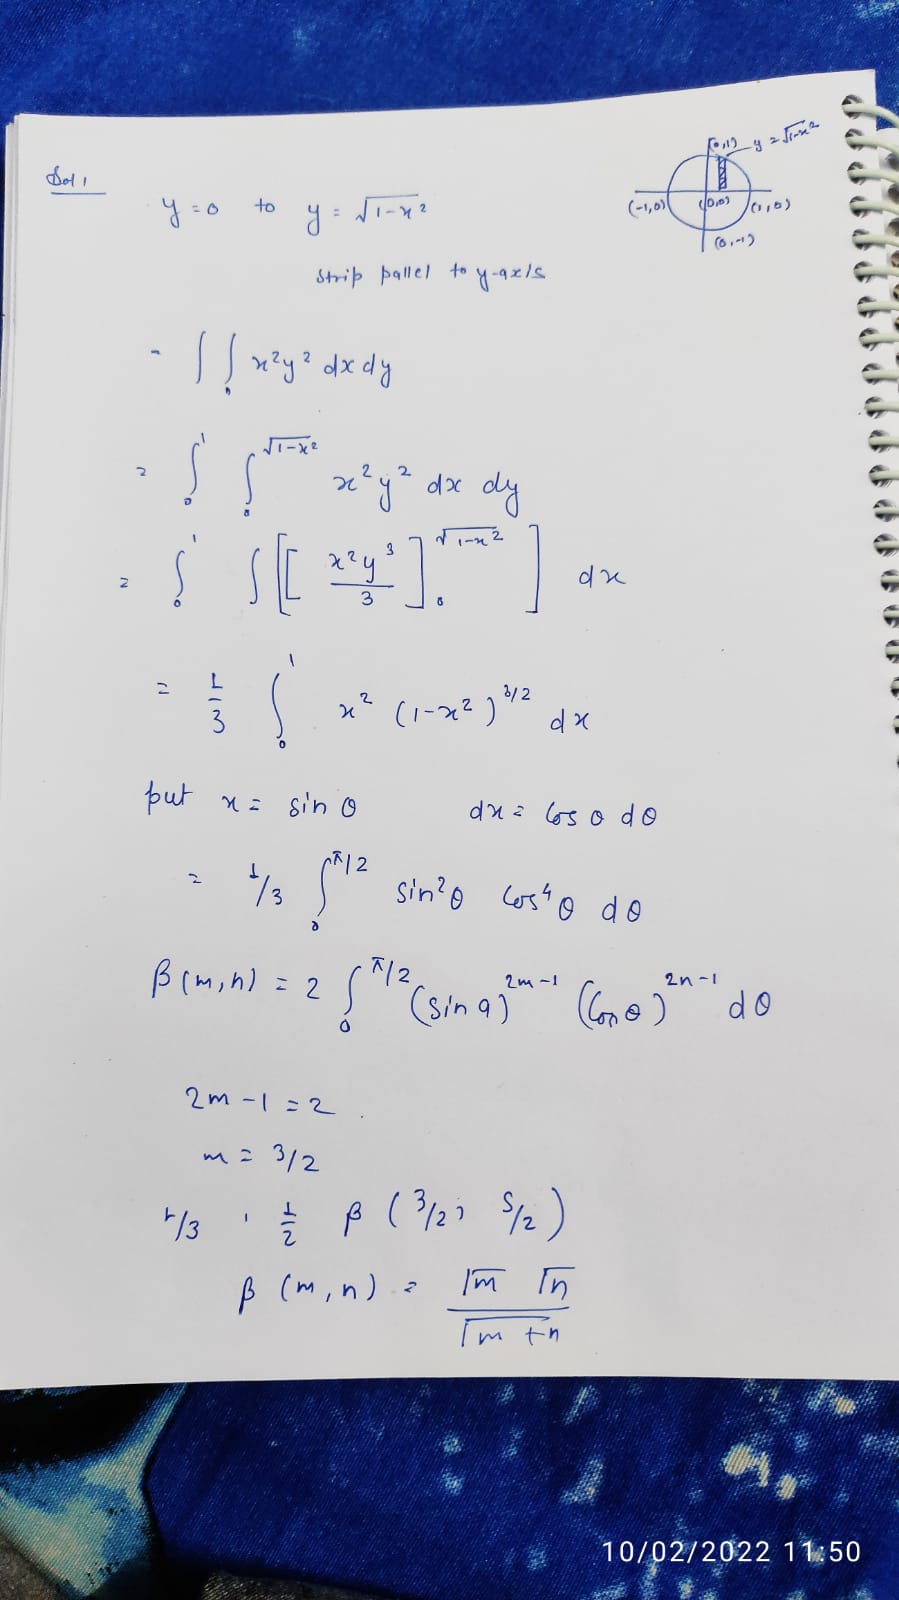 Sol 1
(0,1) y = √1-x²
(-1,0) (0,0) (1,0)
(0,-1)
y = 0 to y = √1-x²
strip pallel to y-axis
- ∫ ∫₀ x²y² dx dy
= ∫₀¹ ∫₀^√1-x² x²y² dx dy
= ∫₀¹ ∫ [ [ x²y³/3 ]₀^√1-x² ] dx
= 1/3 ∫₀¹ x² (1-x²)^3/2 dx
put x = sin θ dx = cos θ dθ
= 1/3 ∫₀^π/2 sin²θ cos⁴θ dθ
β(m,n) = 2 ∫₀^π/2 (sin θ)^2m-1 (cos θ)^2n-1 dθ
2m - 1 = 2
m = 3/2
1/3 · 1/2 β (3/2, 5/2)
β (m,n) = Γm Γn / Γm+n
10/02/2022 11:50